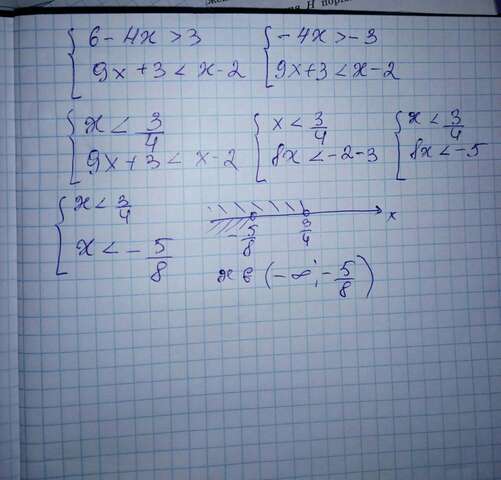 Н порт
{ 6 - 4x > 3
{ 9x + 3 < x - 2
{ - 4x > - 3
{ 9x + 3 < x - 2
{ x < 3/4
{ 9x + 3 < x - 2
{ x < 3/4
{ 8x < - 2 - 3
{ x < 3/4
{ 8x < - 5
{ x < 3/4
{ x < - 5/8
- 5/8 3/4 x
x ∈ (- ∞; - 5/8)